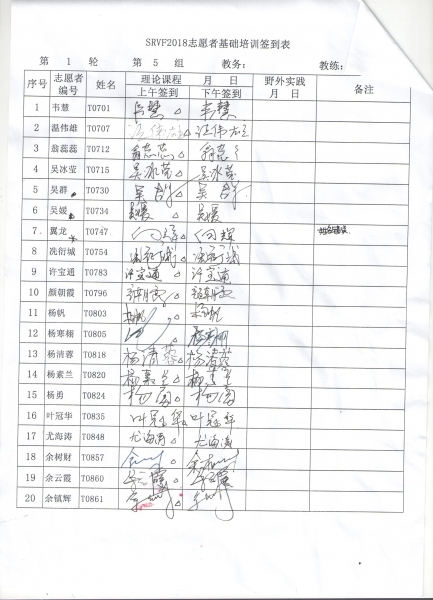 SRVF2018志愿者基础培训签到表
第 1 轮 第 5 组 教务： 教练：
序号 志愿者编号 姓名 理论课程 月 日 野外实践 月 日 备注
上午签到 下午签到
1 韦慧 T0701 韦慧
2 温伟雄 T0707
3 翁蕊蕊 T0712
4 吴冰莹 T0715 吴冰莹 吴冰莹
5 吴群 T0730 吴群 吴群
6 吴媛 T0734 吴媛 吴媛
7 翼龙 T0747
8 冼衍城 T0754
9 许宝通 T0783 许宝通 许宝通
10 颜朝霞 T0796
11 杨帆 T0803 杨帆 杨帆
12 杨寒栩 T0805
13 杨清蓉 T0818 杨清蓉 杨清蓉
14 杨素兰 T0820 杨素兰 杨素兰
15 杨勇 T0824 杨勇 杨勇
16 叶冠华 T0835 叶冠华 叶冠华
17 尤海涛 T0848 尤海涛 尤海涛
18 余树财 T0857
19 余云霞 T0860
20 余镇辉 T0861